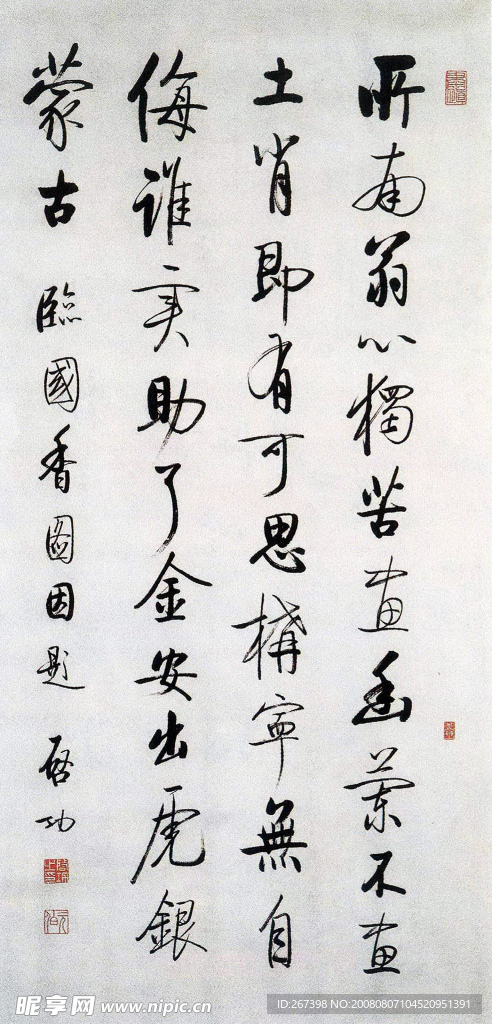 所南翁心獨苦画幽蘭不画
土肖即有可思構寧無自
侮誰实助了金安出虎銀
蒙古 臨國香图因题 启功
昵享网 www.nipic.cn
ID:267398 NO:20080807104520951391